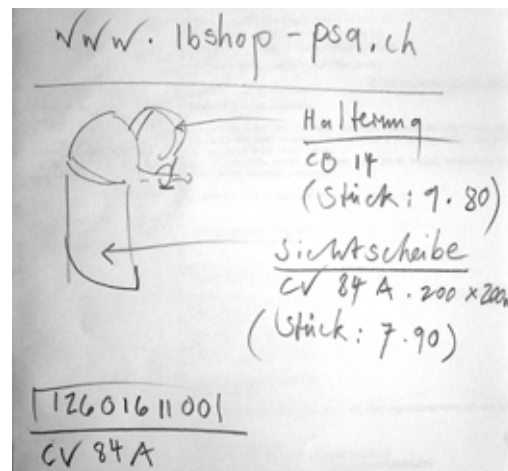 www.lbshop-psa.ch
Halterung
CB 14
(Stück: 9.80)
Sichtscheibe
CV 84 A. 200 x 200
(Stück: 7.90)
12601611001
CV 84 A